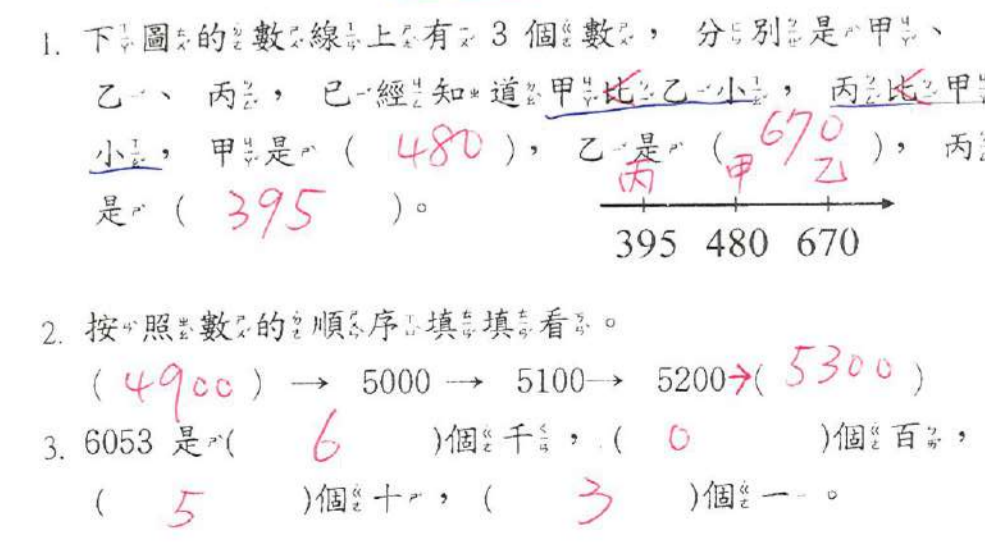 1. 下圖的數線上有 3 個數，分別是甲、
乙、丙，已經知道甲比乙小，丙比甲
小，甲是（ 480 ），乙是（ 670 ），丙
是（ 395 ）。
丙 甲 乙
395 480 670
2. 按照數的順序填填看。
( 4900 ) → 5000 → 5100→ 5200→( 5300 )
3. 6053 是( 6 )個千，( 0 )個百，
( 5 )個十，( 3 )個一。